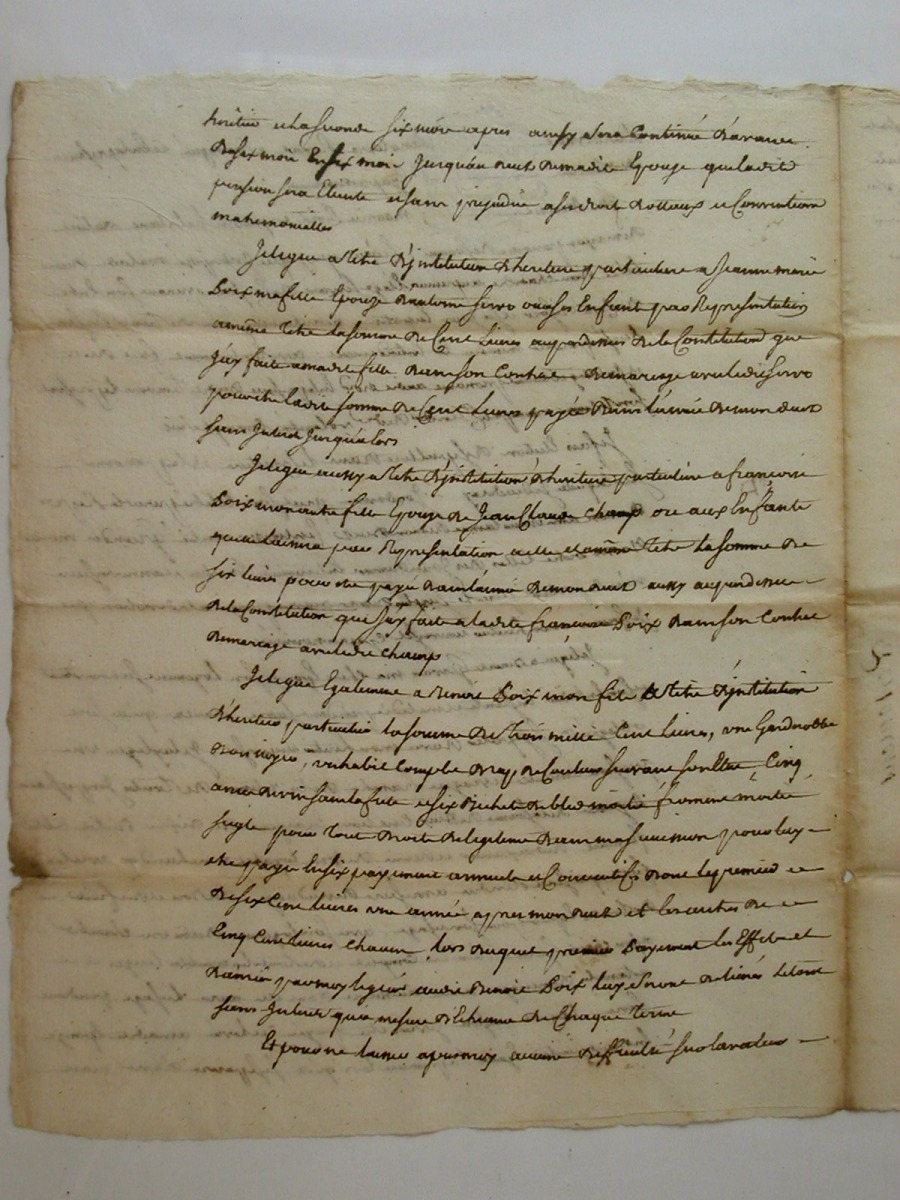 et la seconde six mois apres aussy sera Continué d'avance
De six mois En six mois Jusquau deces de madite Epouze que ladite
pension sera Eteinte et sans prejudice a ses droits dottaux et Conventions
matrimonialles
Je legue a titre d'jnstitution d'heritiere particuliere a Jeanne marie
Boix ma fille Epouze d'antoine servo ou a ses Enfants par Representation
a même titre la somme de Cent Livres au par dessus de la Constitution que
j'ay faite a madite fille dans son Contrat de mariage avec ledit servo
pour être ladite somme de Cent Livres payée dans l'année de mon deces
sans Jnteret Jusqu'alors
Je legue aussy a titre d'jnstitution d'heritiere particuliere a francoise
Boix mon autre fille Epouze de Jean Claude Champ ou aux Enfants
quelle laissera par Representation delle et a même titre la somme de
six livres pour être payé dans l'année de mon deces aussy au par dessus
de la Constitution que j'ay faite a ladite francoise Boix dans son Contrat
de mariage avec ledit champ
Je legue Egalement a Benoit Boix mon fils a titre d'jnstitution
d'heritier particulier la somme de trois mille Cent Livres, une Garderobbe
bois noyer, un habit Complet de Couleur suivant son Etat Cinq
anées de vin sans la futte et six Bichets de bled moitié froment moitié
seigle pour tout droits de legitime dans ma succession pour luy
etre payé En six payements annuels et Consecutifs dont le premier
de six Cent livres une année apres mon deces et les autres de
Cinq Cent livres chacun, lors duquel premier payement les Effets et
denrées par moy legués audit Benoit Boix luy seront delivrés le tout
sans Jnterets qu'a mesure d'Echeance de Chaque terme
Et pour ne laisser apres moy aucune difficulté sur la valeur